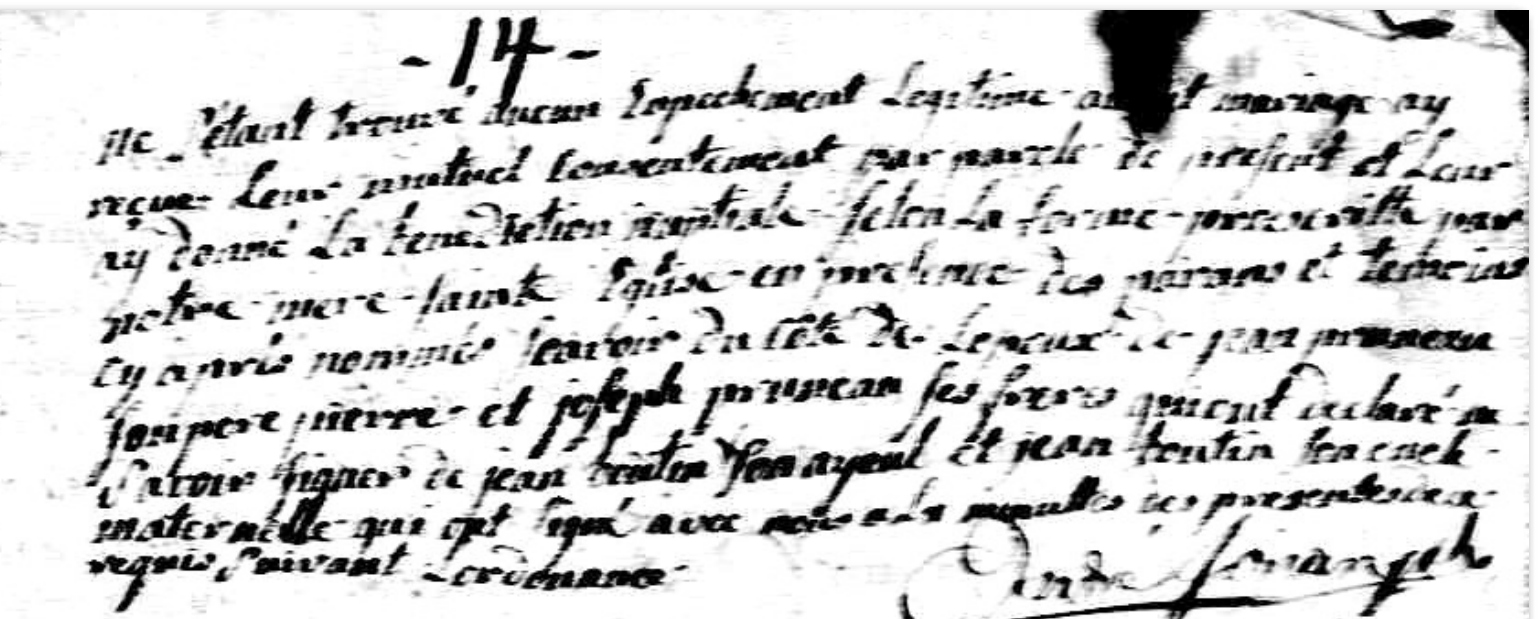 - 14 -
ne S'étant trouvé aucun Enpechement Legitime au mariage ay
reçue Leur mutuel Consentement par parole de present et Leur
ay donné La benediction nuptiale selon La forme prescritte par
notre mere sainte Eglise en presence des parans et temoins
Cy apres nommés scavoir Du Coté De Lepoux de jean pruneau
son pere pierre et joseph pruneau ses freres qui ont declaré ne
Savoir signer de jean boutin son ayeul et jean boutin son oncle
maternelle qui ont signé avec nous a la minutte des presentes
requis Suivant Lordonance